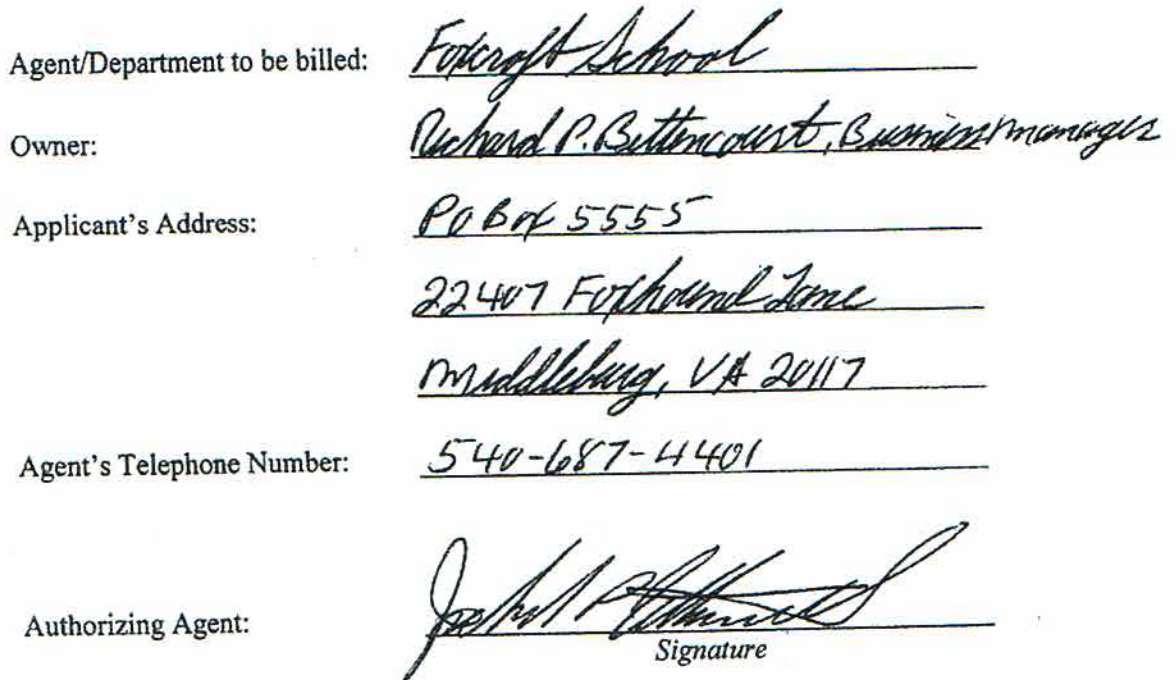 Agent/Department to be billed: Foxcroft School
Owner: Richard P. Bettencourt, Business Manager
Applicant's Address: PO Box 5555
22407 Foxhound Lane
Middleburg, VA 20117
Agent's Telephone Number: 540-687-4401
Authorizing Agent:
Signature